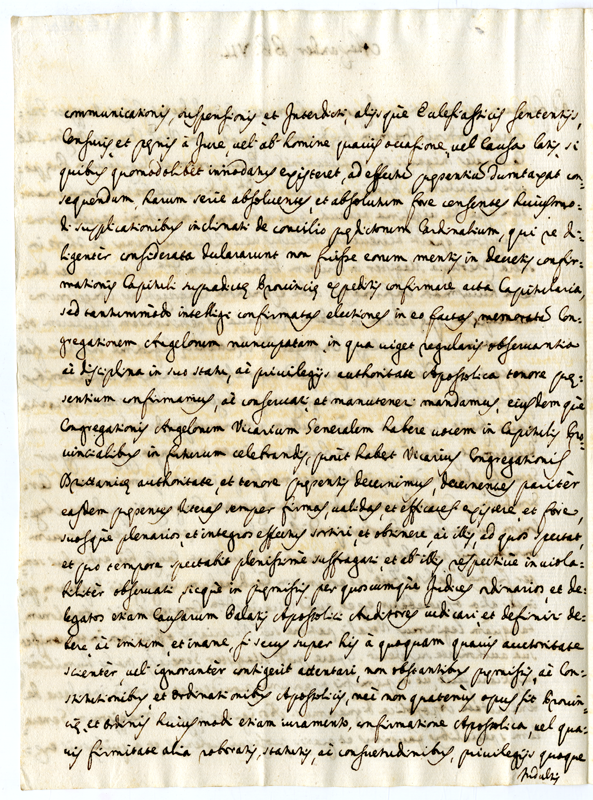 communicationis, suspensionis, et Interdicti, alijsque Ecclesiasticis sententijs,
Censuris, et pęnis à Jure, vel ab homine quavis occasione, vel causa latis, si
quibus quomodolibet innodatus existeret, ad effectũ pręsentiũ dumtaxat con=
sequendum, harum serie absolventes, et absolutum fore censentes huiusmo=
di supplicationibus inclinati de concilio pędictorum Cardinalium, qui re di=
ligentèr considerata declararunt non fuisse eorum mentis in decretis confir=
mationis Capituli supradictę Provincię expeditis confirmare acta Capitularia,
sed tantummòdo intelligi confirmatas electiones in eo factas, memoratã Con=
gregationem Angelorum nuncupatam, in qua viget regularis observantia
ac disciplina in suo statu, ac privilegijs authoritate Apostolica tenore prę=
sentium confirmamus, ac conservari, et manuteneri mandamus, eiusdem què
Congregationis Angelorum Vicarium Generalem habere vocem in Capitulis Pro=
vincialibus in futurum celebrandis, prout habet Vicarius Congregationis
Brittanię authoritate, et tenore pręsentis decernimus, decernentes pariter
easdem pręsentes literas semper firmas, validas, et efficaces existere, et fore,
suosque plenarios, et integros effectus sortiri et obtinere, ac illis, ad quos spectat,
et pro tempore spectabit plenissimè suffragari, et ab illis respectivè inviola=
biliter observari, sicque in pręmissis per quoscumque Judices ordinarios, et de=
legatos etiam Causarum Palatij Apostolici Auditores iudicari, et definiri de=
bere, ac irritum, et inane, si secus super his à quoquam quavis auctoritate
scientèr, vel ignorantèr contigerit attentari, non obstantibus pręmissis, ac Con=
stitutionibus, et ordinationibus Apostolicis, nec non quatenus opus sit Provin=
cię, et Ordinis huiusmodi etiam iuramento, confirmatione Apostolica, vel qua=
vis firmitate alia roboratis, statutis, ac consuetudinibus, privilegijs quoque
Indultis